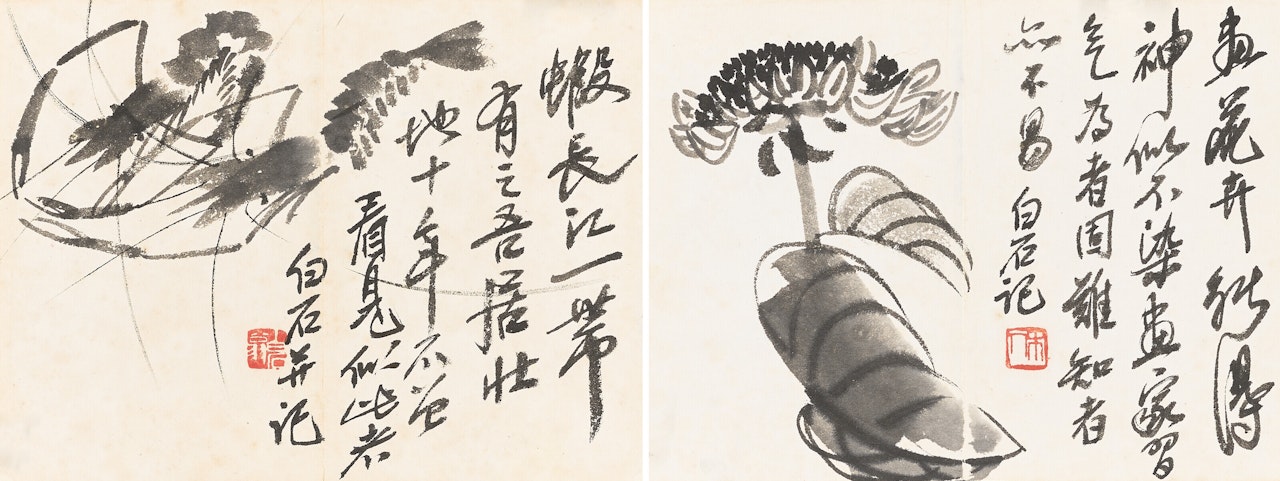 蝦長江一帶
有之吾居北
地十年不曾
看見似此者
白石并記
畫花卉能得
神似不染畫家習
气為者固難知者
亦不易
白石記
木人